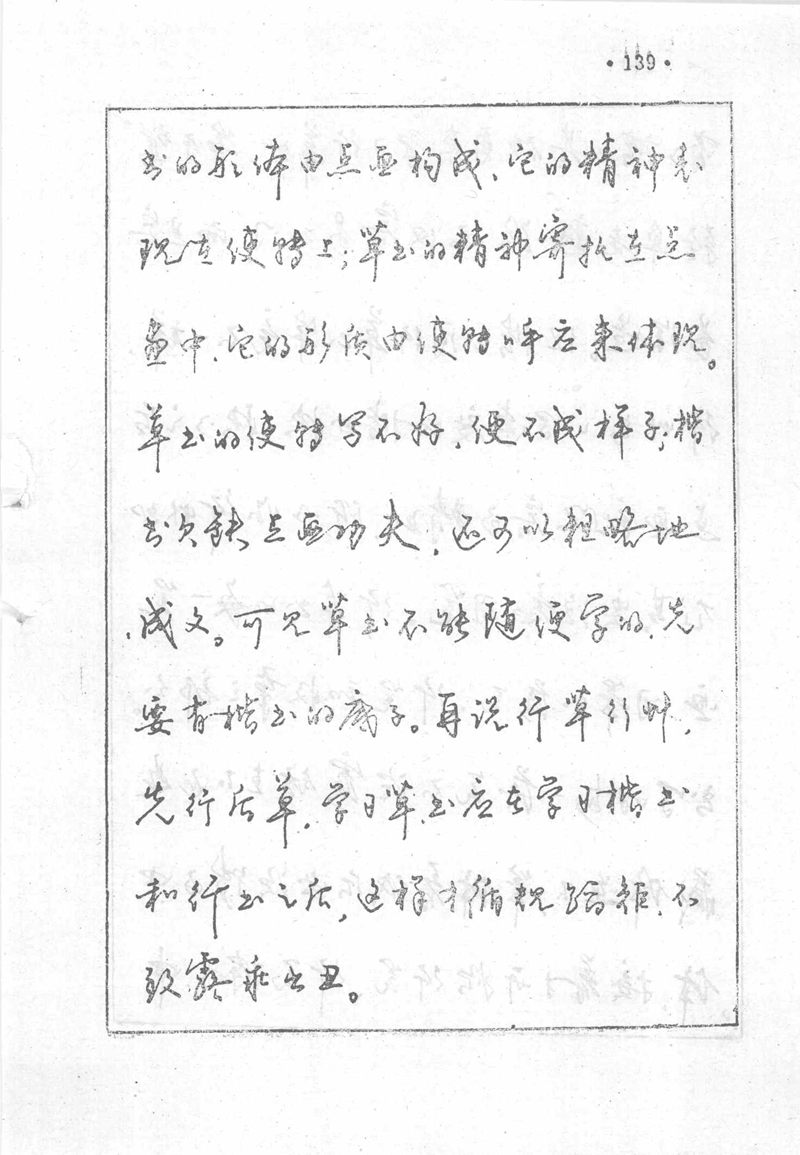 ·139·
书的形体由点画构成,它的精神表
现在使转上;草书的精神寄托在点
画中,它的形质由使转呼应来体现。
草书的使转写不好,便不成样子;楷
书欠缺点画功夫,还可以粗略地
成文。可见草书不能随便学的,先
要有楷书的底子。再说行草行草,
先行后草,学习草书应在学习楷书
和行书之后,这样才循规蹈矩,不
致露乖出丑。